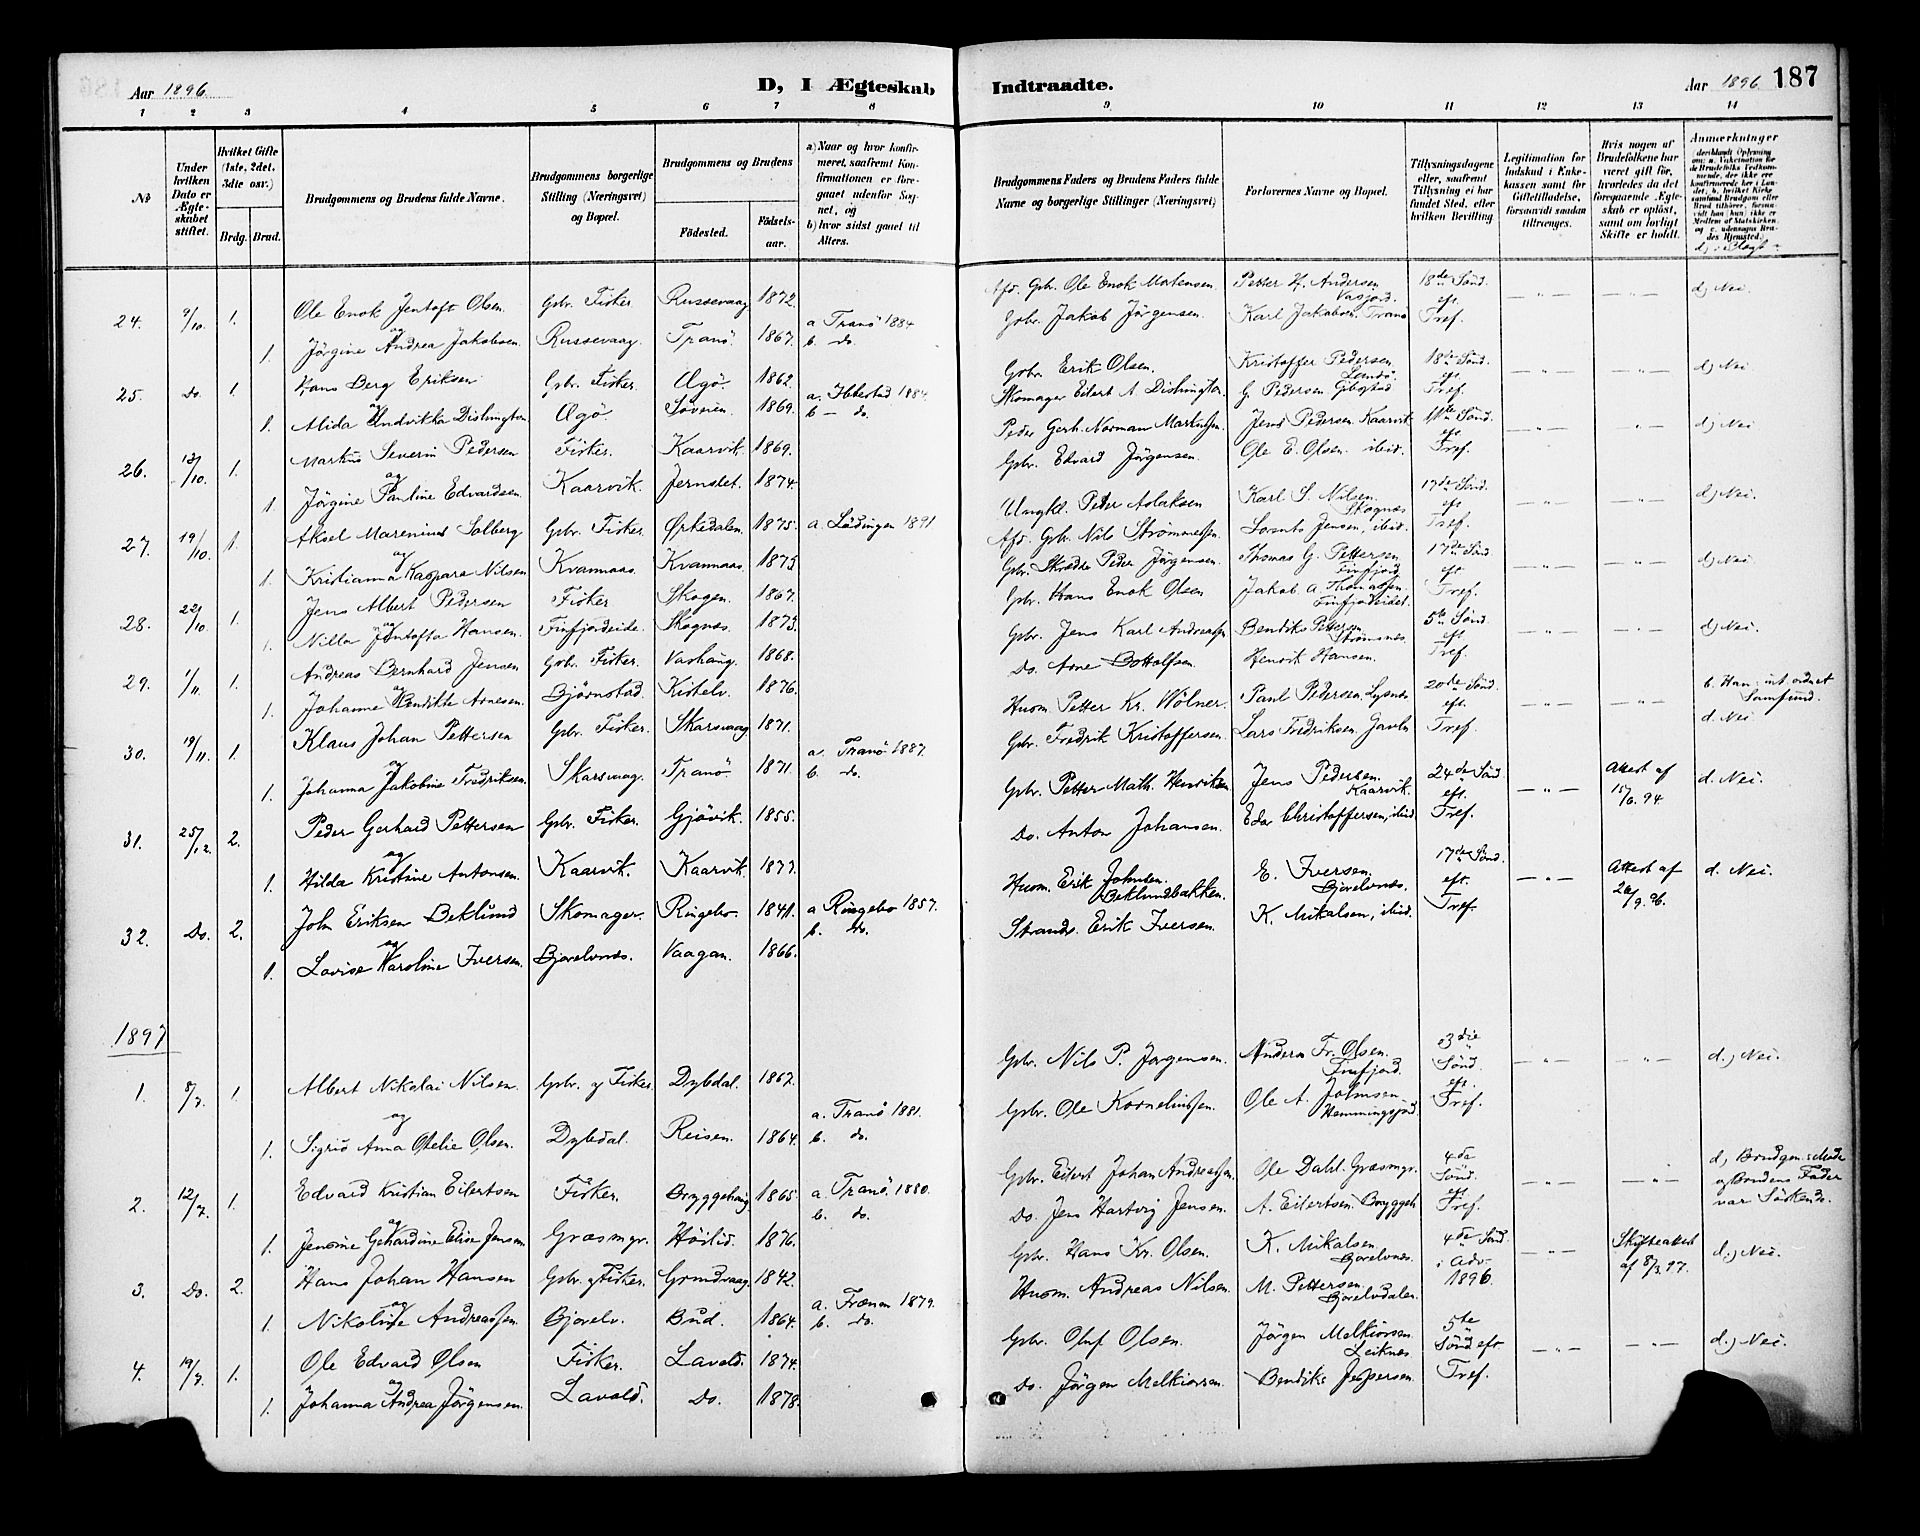 Aar 1896.
D, I Ægteskab
Indtraadte.
Aar 1896.
187
1 2 3 4 5 6 7 8
9 10 11 12 13 14
No
Under hvilken Dato er Ægteskabet stiftet.
Hvilket Gifte (1ste, 2det, 3die osv.)
Brdg. Brud.
Brudgommens og Brudens fulde Navne.
Brudgommens borgerlige Stilling (Næringsvei) og Bopæl.
Brudgommens og Brudens
Fødested.
Fødselsaar.
a) Naar og hvor konfirmeret, saafremt Konfirmationen er foregaaet udenfor Sognet, og
b) hvor sidst gaaet til Alters.
Brudgommens Faders og Brudens Faders fulde Navne og borgerlige Stillinger (Næringsvei)
Forlovernes Navne og Bopæl.
Tillysningsdagene eller, saafremt Tillysning ei har fundet Sted, efter hvilken Bevilling.
Legitimation for Indskud i Enkekassen samt for Giftetilladelse, forsaavidt saadan tiltrænges.
Hvis nogen af Brudefolkene har været gift før, hvorledes da det foregaaende Ægteskab er opløst, samt om lovligt Skifte er holdt.
Anmærkninger
24. 9/10. 1. Ole Enok Jentoft Olsen Gbr. Fisker Russevaag 1872. Afd. Gbr. Ole Enok Mortensen. Petter H. Andersen Vasjord. 18de Sønd. eft. Tref. d) Nei.
og
1. Jörgine Andrea Jakobsen Russevaag. Tranö. 1867. a Tranö 1884 b. do. Gbr. Jakob Jörgensen. Karl Jakobsen Tranö
25. Do. 1. Hans Berg Eriksen Gbr. Fisker. Ægö. 1862. Gbr. Erik Olsen. Kristoffer Pedersen 18de Sønd. eft. Tref. d) Nei
og
1. Alida Ludvikka Dishington Ægö. 1869. a. Ibbestad 1884. b — do. Skomager Eilert A. Dishington. G. Pedersen Gibostad
26. 13/10. 1. Martin Severin Pedersen Fisker. Kaarvik. 1869. Peder Gerh. Norman Jens Pedersen Kaarvik 11te Sønd. eft Tref. d) Nei
og
1. Jörgine Pauline Edvardsen. Kaarvik. Jernslet. 1874. Gbr. Edvard Jörgensen. Ole E. Olsen. ibid.
27. 19/10. 1. Aksel Mareninus Solberg Gbr. Fisker. Ørkedalen. 1875. a. Lödingen 1891 Ungkl. Peder Aslaksen Karl S. Nilsen. Skognæs 17de Sønd. eft Tref. d) Nei.
og
1. Kristianna Kaspara Nilsen Kvannaas. Kvannaas. 1873 Afd. Gbr. Nils Strömmesen. Lorents Jensen, ibid.
28. 22/10. 1. Jens Albert Pedersen Fisker Skogen. 1867. Gbr. Skræder Peder Jörgensen. Thomas G. Pettersen Finfjord. 17de Sønd eft Tref. d) Nei.
og
1. Nilla Jentofta Hansen. Finfjordeide. Skognæs. 1873. Gbr. Hans Enok Olsen Jakob A. Thomassen Finfjordeidet.
29. 1/11. 1. Andreas Bernhard Jensen Gbr. Fisker. Vashaug. 1868. Gbr. Jens Karl Andreassen Bendiks Pettersen Strömsnes 5te Sønd. eft Tref. d) Nei.
og
1. Johanne Bendikte Arnesen. Björnstad. Kistelv. 1876. Do. Arne Bottolfsen Henrik Hansen.
30. 19/11. 1. Klaus Johan Pettersen Gbr. Fisker. Skarsvaag 1871. Husm. Petter Kr. Wölner. Paul Pedersen. Lysnes 20de Sønd. eft. Tref. b. Han: int. ordnet Samfund. d. Nei
og
1. Johanna Jakobine Fredriksen. Skarsvaag. Tranö. 1871. a. Tranö. 1887. b. do. Gbr. Fredrik Kristoffersen. Lars Fredriksen.
31. 25/12. 2. Peder Gerhard Pettersen Gbr. Fisker. Gjövik. 1855. Gbr. Petter Math. Henriksen Jens Pedersen. Kaarvik. 24de Sønd eft. Tref. Attest af 15/6. 94 d. Nei.
og
1. Hilda Kristine Antonsen. Kaarvik. Kaarvik. 1877. Do. Anton Johansen. Edv. Christoffersen, ibid.
32. Do. 2. John Eriksen Beklund Skomager. Ringebo. 1841. a Ringebo 1857. b. do. Husm. Erik Johnsen. Beklundbakken. E. Iversen. Bjorelvnes. 17de Sønd. eft. Tref. Attest af 26/9. 96. d. Nei.
og
1. Lovise Karoline Iversen. Bjorelvnes. Vaagan. 1866. Strands. Erik Iversen. K. Mikalsen, ibid.
1897
1. 8/3. 1. Albert Nikolai Nilsen. Gbr. y Fisker. Dybdal. 1867. Gbr. Nils P. Jorgensen. Anders Fr. Olsen. Finfjord. 3die Sønd. eft. Tref. d.) Nei.
og
1. Sigrid Anna Ofelie Olsen. Dybdal. Reisen. 1864. a. Tranö 1881. b. do. Gbr. Ole Kornelinssen. Ole A. Johnsen. Hemmingsjord.
2. 12/3. 1. Edvard Kristian Eilertsen Fisker. Bryggehaug 1865. a. Tranö. 1880. b. do. Gbr. Eilert Johan Andreassen. Ole Dahl. Græsmyr. 4de Sønd. eft Tref. d) Brudgoms Moder og Brudens Fader var Söskende.
og
1. Jensine Gehardine Elise Jensen Græsmyr. Höilid. 1876. Do. Jens Hartvig Jensen. A. Eilertsen. Bryggeh
3. Do. 2. Hans Johan Hansen Gbr. y Fisker. Grundvaag 1842. Gbr. Hans Kr. Olsen. K. Mikalsen. Bjorelvnes. 4de Sønd. i Adv. 1896. Skifteattest af 8/3. 97. d.) Nei.
og
1. Nikoline Andreassen. Bjorelv. Bud. 1864. a. Frænen 1879. b. do. Husm. Andreas Nilsen. M. Pettersen. Bjorelvdalen.
4. 19/3. 1. Ole Edvard Olsen Fisker. Lavold. 1874. Gbr. Oluf Olsen. Jörgen Melkiorsen. Leiknes 5te Sønd eft Tref. d.) Nei.
og
1. Johanna Andrea Jörgensen. Lavold. Do. 1878. Do. Jörgen Melkiorsen. Bendiks Jespersen.